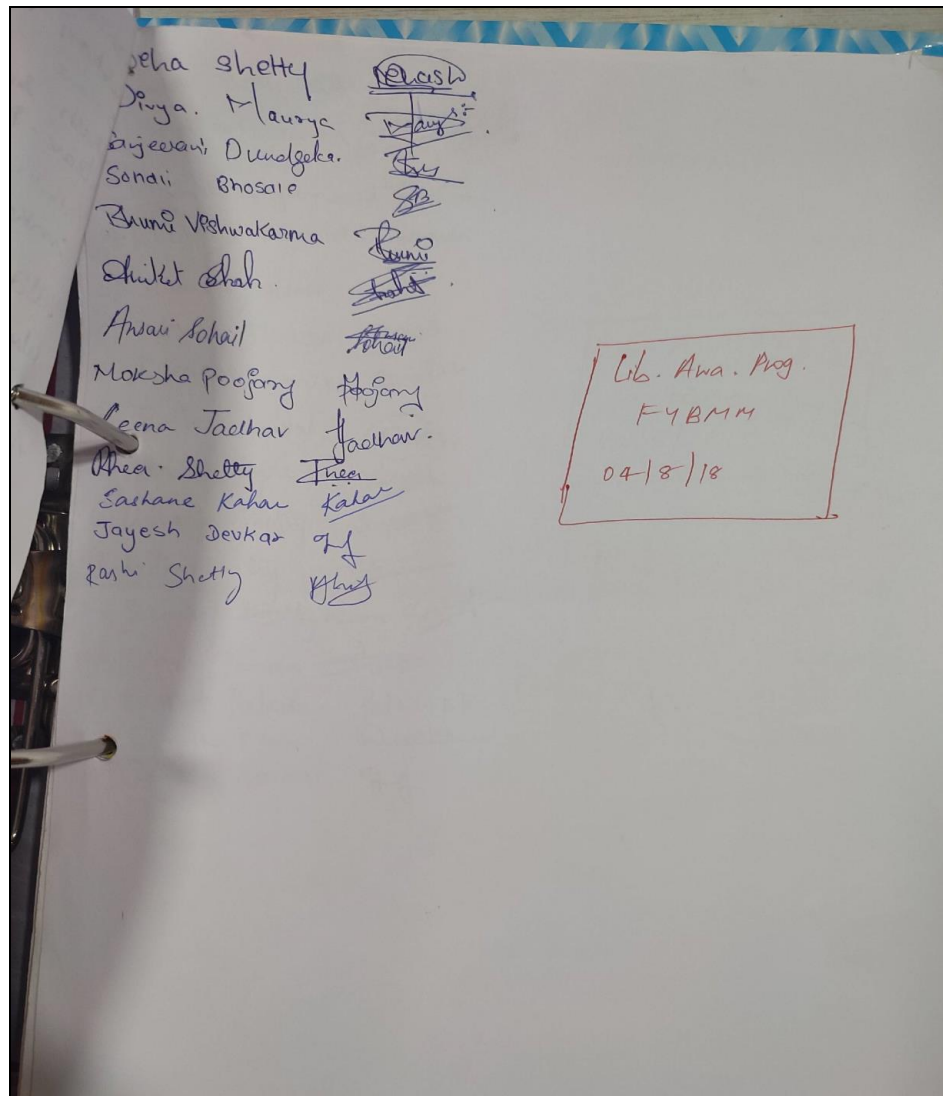 Neha Shetty Nehash
Divya. Maurya
Sanjeevani Dundgeka.
Sonali Bhosale SB
Bhumi Vishwakarma Bhumi
Aniket Shah. Shah
Ansari Sohail Sohail
Moksha Poojary Poojary
Leena Jadhav Jadhav.
Rhea. Shetty Rhea
Kahar Kahar
Jayesh Devkar
Rashi Shetty
Lib. Awa. Prog.
FYBMM
04/8/18